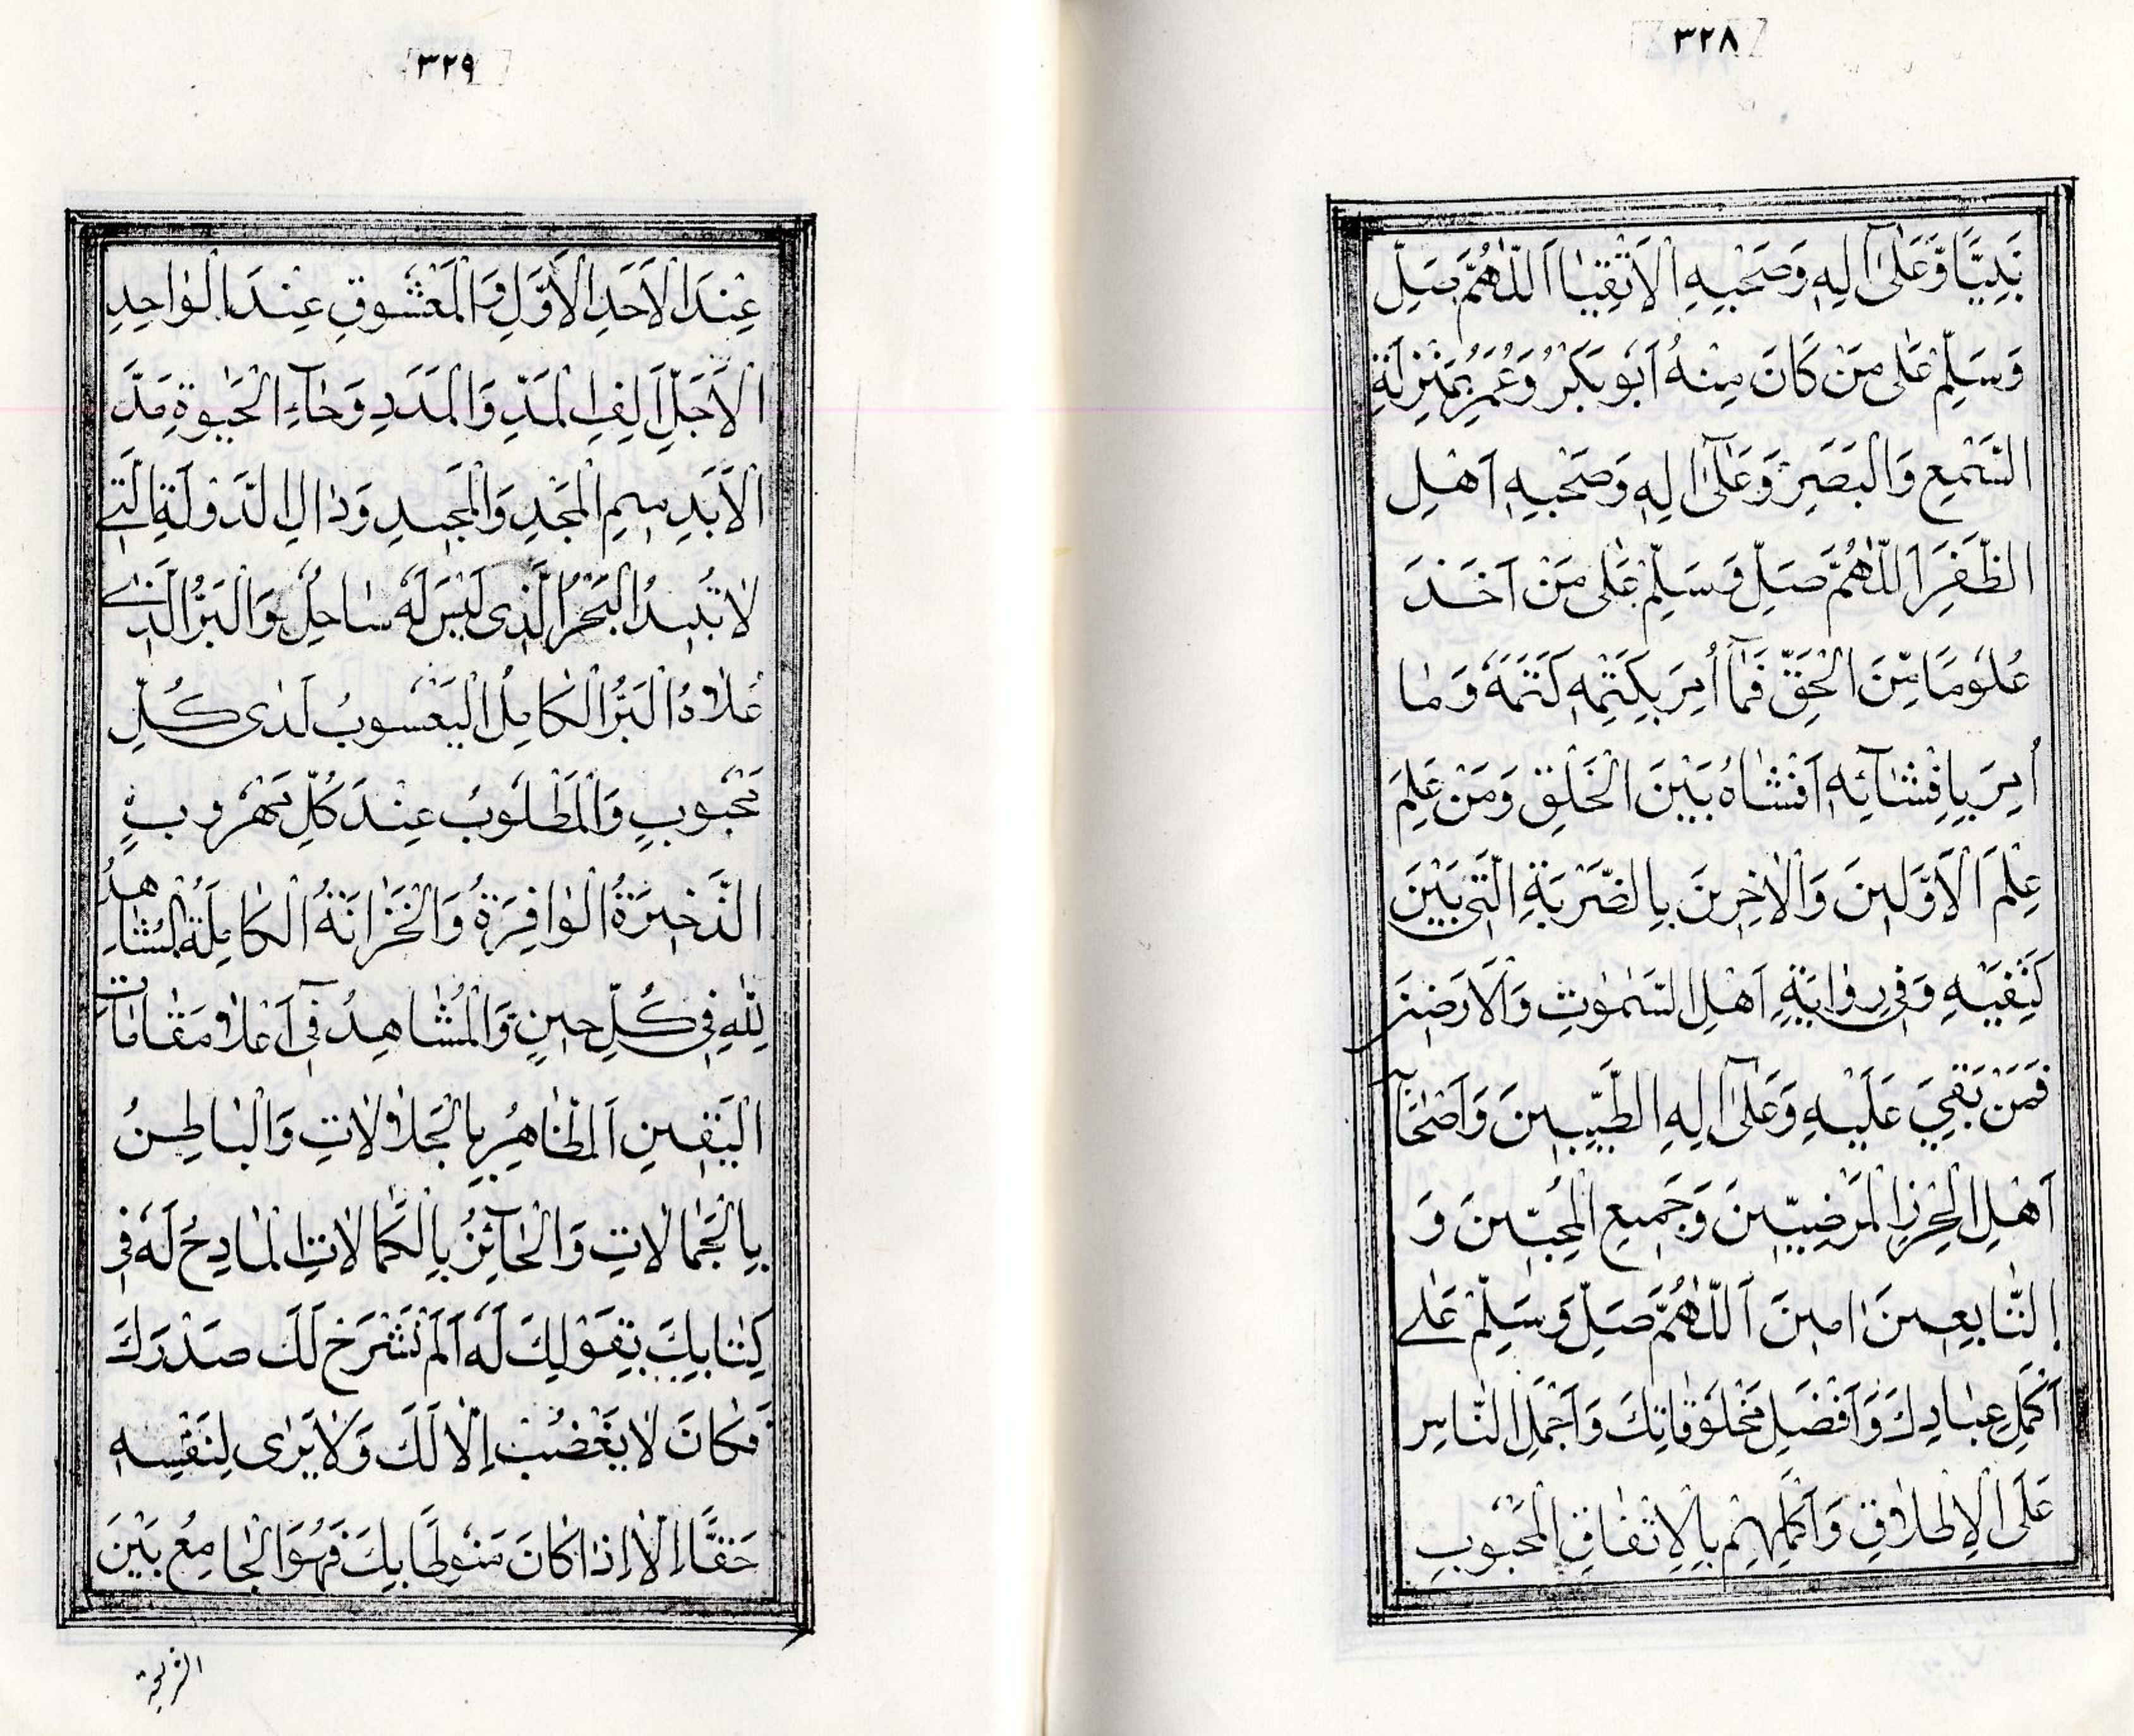 ٣٢٨
نَبِيًّا وَّعَلٰٓى اٰلِهٖ وَصَحْبِهِ الْاَتْقِيَا اَللّٰهُمَّ صَلِّ
وَسَلِّمْ عَلٰى مَنْ كَانَ مِنْهُ اَبُوْ بَكْرٍ وَّعُمَرُ بِمَنْزِلَةِ
السَّمْعِ وَالْبَصَرِ وَعَلٰٓى اٰلِهٖ وَصَحْبِهٖ اَهْلِ
الظَّفَرِ اَللّٰهُمَّ صَلِّ وَسَلِّمْ عَلٰى مَنْ اَخَذَ
عُلُوْمًا مِّنَ الْحَقِّ فَمَآ اُمِرَ بِكَتْمِهٖ كَتَمَهٗ وَمَا
اُمِرَ بِاِفْشَآئِهٖ اَفْشَاهُ بَيْنَ الْخَلْقِ وَمَنْ عَلِمَ
عِلْمَ الْاَوَّلِيْنَ وَالْاٰخِرِيْنَ بِالضَّرْبَةِ الَّتِيْ بَيْنَ
كَتِفَيْهِ وَفِيْ رِوَايَةٍ اَهْلِ السَّمٰوٰتِ وَالْاَرَضِيْنَ
فَمَنْ بَقِيَ عَلَيْهِ وَعَلٰٓى اٰلِهِ الطَّيِّبِيْنَ وَاَصْحَابِهٖ
اَهْلِ الْحِرْزِ الْمَرْضِيِّيْنَ وَجَمِيْعِ الْمُحِبِّيْنَ وَ
التَّابِعِيْنَ اٰمِيْنَ اَللّٰهُمَّ صَلِّ وَسَلِّمْ عَلٰى
اَكْمَلِ عِبَادِكَ وَاَفْضَلِ مَخْلُوْقَاتِكَ وَاَجْمَلِ النَّاسِ
عَلَى الْاِطْلَاقِ وَاَكْمَلِهِمْ بِالْاِتِّفَاقِ الْمَحْبُوْبِ
٣٢٩
عِنْدَ الْاَحَدِ الْاَوَّلِ وَالْمَعْشُوْقِ عِنْدَ الْوَاحِدِ
الْاَجَلِّ اَلِفِ الْمَدِّ وَالْمَدَدِ وَحَآءِ الْحَيٰوةِ مَدَّ
الْاَبَدِ مِيْمِ الْمَجْدِ وَالْمَجِيْدِ وَدَالِ الدَّوْلَةِ الَّتِيْ
لَا تُبِيْدُ الْبَحْرُ الَّذِيْ لَيْسَ لَهٗ سَاحِلٌ وَالْبَرُّ الَّذِيْ
عُلَاهُ الْبَرُّ الْكَامِلُ الْيَعْسُوْبُ لَدٰى كُلِّ
مَحْبُوْبٍ وَالْمَطْلُوْبُ عِنْدَ كُلِّ مَهْرُوْبٍ
الذَّخِيْرَةُ الْوَافِرَةُ وَالْخَزَانَةُ الْكَامِلَةُ الْمُشَاهِدُ
لِلّٰهِ فِيْ كُلِّ حِيْنٍ وَالْمُشَاهِدُ فِيْٓ اَعْلَا مَقَامَاتِ
الْيَقِيْنِ اَلظَّاهِرُ بِالْجَلَالَاتِ وَالْبَاطِنُ
بِالْجَمَالَاتِ وَالْحَآئِزُ بِالْكَمَالَاتِ الْمَادِحُ لَهٗ فِيْ
كِتَابِكَ بِقَوْلِكَ لَهٗ اَلَمْ نَشْرَحْ لَكَ صَدْرَكَ
فَكَانَ لَا يَغْضَبُ اِلَّا لَكَ وَلَا يَرٰى لِنَفْسِهٖ
حَقًّا اِلَّا اِذَا كَانَ مَنُوْطًا بِكَ فَهُوَ الْجَامِعُ بَيْنَ
الشريعة